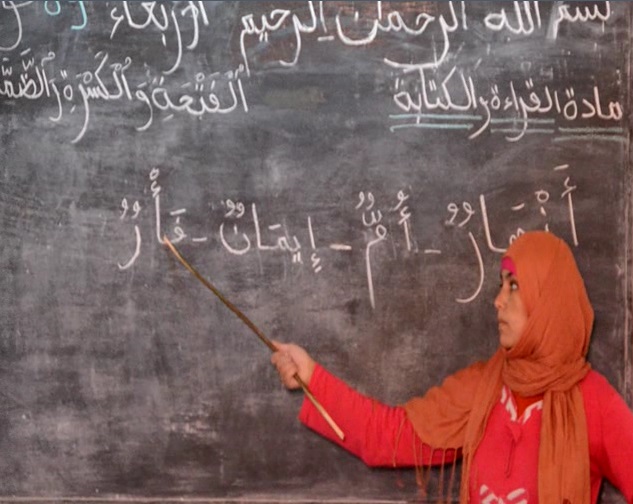 بسم الله الرحمان الرحيم الأربعاء
مادة القراءة والكتابة الْفَتْحَةِ وَالْكَسْرَةِ وَالضَّمَّ
أَنْهَارٌ - أُمٌّ - إِيمَانٌ - فَأْرٌ